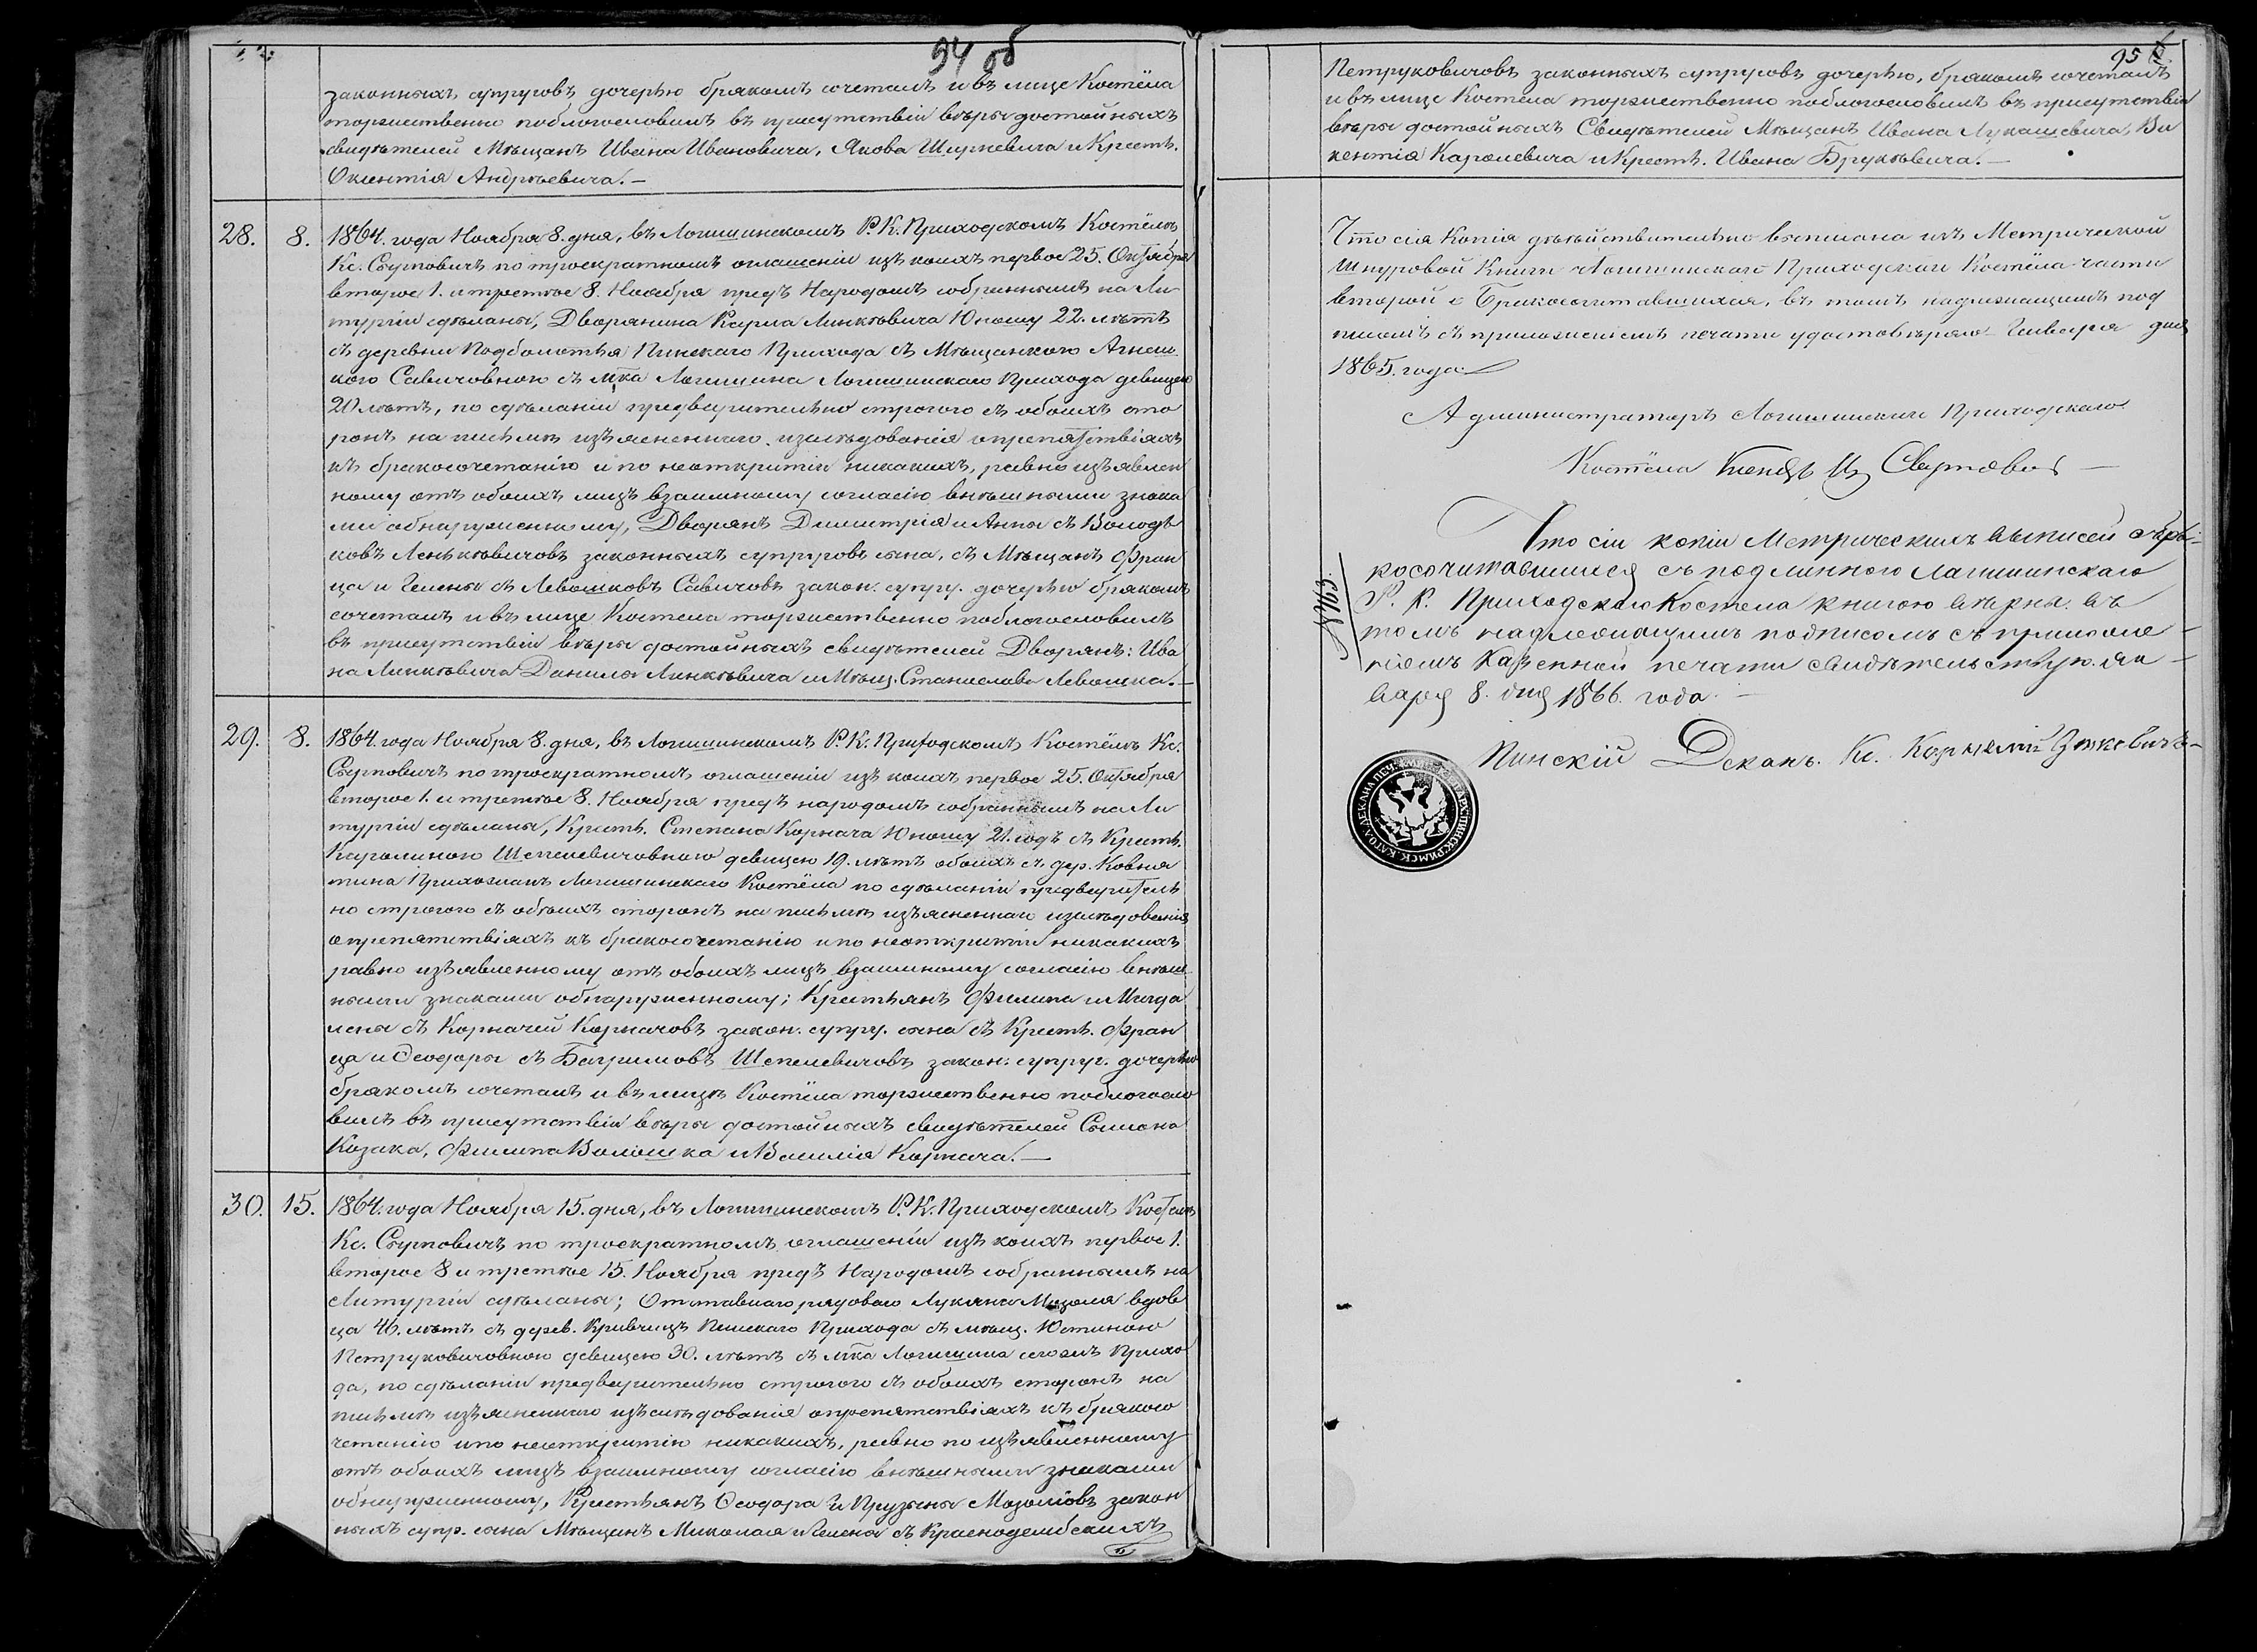 94 об
законныхъ супруговъ дочерью бракомъ сочеталъ и въ лице Костёла
торжественно поблогословилъ въ присутствіи вѣры достойныхъ
свидѣтелей Мѣщанъ Ивана Ивановича, Якова и Крестъ.
Андрѣевича.—
28. 8. 1864. года Ноября 8. дня, въ Логишинскомъ Р. К. Приходскомъ Костёлѣ
Кс. по троекратномъ оглашеніи изъ коихъ первое 25. Октября
второе 1. и третье 8. Ноября предъ Народомъ собраннымъ на Ли
тургіи сдѣланы, Дворянина Карла Линкѣвича Юношу 22. лѣтъ
съ деревни Подболотья Пинскаго Прихода съ Мѣщанкою Агнеш
кою Савичовною съ мѣка Логишина Логишинскаго Прихода девицею
20 лѣтъ, по сдѣланіи предварительно строгого съ обоихъ сто
ронъ на письмѣ изъясненнаго изслѣдованія о препятствіяхъ
къ бракосочетанію и по неоткритіи никакихъ, равно изъявлен
ному отъ обоихъ лицъ взаимному согласію внѣшными знака
ми обнаруженному, Дворянъ Димитрія и Анны съ Володь
ковъ законныхъ супруговъ сына, съ Мѣщанъ Фран
ца и Гелены съ Левашковъ Савичовъ закон. супру. дочерью бракомъ
сочеталъ и въ лице Костёла торжественно поблогословилъ
въ присутствіи вѣры достойныхъ свидѣтелей Дворянъ: Ива
на Линкѣвича Данила Линкѣвича и Мѣщ. Станислава Левашка.—
29. 8. 1864. года Ноября 8. дня, въ Логишинскомъ Р. К. Приходскомъ Костёлѣ Кс.
по троекратномъ оглашеніи изъ коихъ первое 25. Октября
второе 1. и третье 8. Ноября предъ народомъ собраннымъ на Ли
тургіи сдѣланы, Крестъ. Степана Корнача Юношу 21. годъ съ Крестъ.
Каролиною Шепелевичовною девицею 19. лѣтъ обоихъ съ дер. Ковня
тина Прихожанъ Логишинскаго Костёла по сдѣланіи предваритель
но строгого съ обоихъ сторонъ на письмѣ изъясненнаго изслѣдованія
о препятствіяхъ къ бракосочетанію и по неоткритіи никакихъ
равно изъявленному отъ обоихъ лицъ взаимному согласію внѣш
ными знаками обнаруженному; Крестьянъ Филипа и Магда
лены съ Корначей Корначовъ закон. супру. сына съ Крестъ. Фран
ца и Ѳеодоры съ Багримовъ Шепелевичовъ закон. супруг. дочерью
бракомъ сочеталъ и въ лицѣ Костёла торжественно поблогосло
вилъ въ присутствіи вѣры достойныхъ свидѣтелей Сымона
Козака, Филипа Волошка и Василія Корнача.—
30. 15. 1864. года Ноября 15. дня, въ Логишинскомъ Р. К. Приходскомъ Костёлѣ
Кс. по троекратномъ оглашеніи изъ коихъ первое 1.
второе 8 и третье 15. Ноября предъ Народомъ собраннымъ на
Литургіи сдѣланы; Отставнаго рядоваго Лукяна Мозоля вдов
ца 46. лѣтъ съ дерев. Кривчицъ Пинскаго Прихода съ мѣщ. Юстиною
Петруковичовною девицею 30. лѣтъ съ мѣка Логишина Прихо
да, по сдѣланіи предварительно строгого съ обоихъ сторонъ на
письмѣ изъясненнаго изъслѣдованія о препятствіяхъ къ бракосо
четанію и по неоткритію никакихъ, равно по изъявленному
отъ обоихъ лицъ взаимному согласію внѣшными знаками
обнаруженному, Крестьянъ Ѳеодора и Прузыны Мозолювъ закон
ныхъ супр. сына Мѣщанъ Миколая и Гелены съ Красноделбскихъ
95
Петруковичовъ законныхъ супруговъ дочерью, бракомъ сочеталъ
и въ лице Костёла торжественно поблогословилъ въ присутствіи
вѣры достойныхъ Свидѣтелей Мѣщанъ Ивана Лукашевича, Ви
кентія Каролевича и Крестъ. Ивана Брукѣвича.—
Что сія Копія дѣйствительно выписана изъ Метрической
Шнуровой Книги Логишинскаго Приходскаго Костёла части
второй о Бракосочитавшихся, въ томъ надлежащимъ под
писомъ съ приложеніемъ печати удостовѣряю Генваря дня
1865. года
Администраторъ Логишинскаго Приходскаго
Костёла
Что сіи копіи Метрическихъ выписей о бра-
косочитавшихся съ подлинною Логишинскаго
Р. К. Приходскаго Костела книгою вѣрны. въ
томъ надлежащимъ подписомъ съ приложе-
ніемъ Казенной печати свидѣтельствую. Ян-
варя 8. дня 1866. года.—
Пинскій Деканъ. Кс.